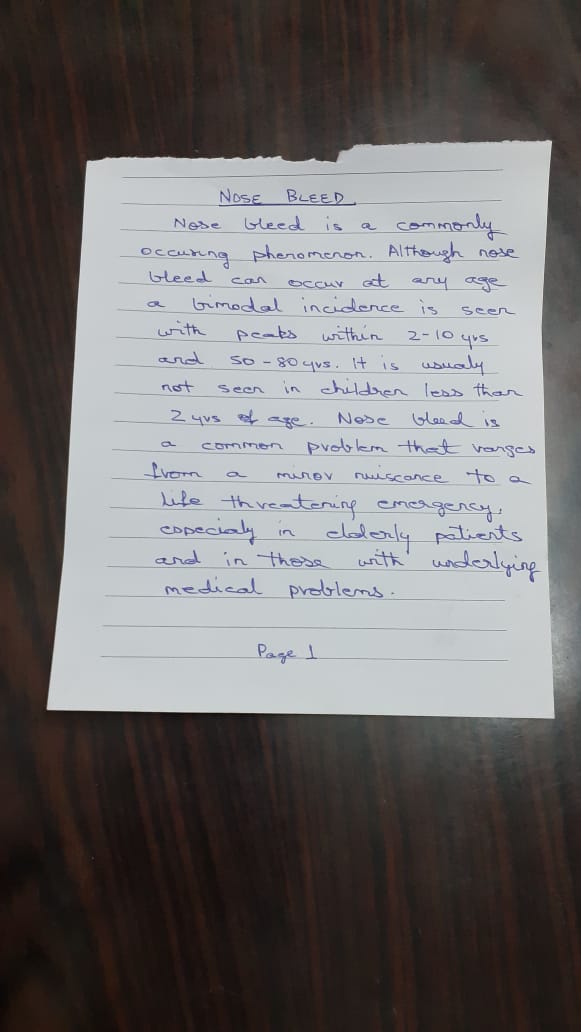 NOSE BLEED
Nose bleed is a commonly
occuring phenomenon. Although nose
bleed can occur at any age
a bimodal incidence is seen
with peaks within 2-10 yrs
and 50-80 yrs. It is usualy
not seen in children less than
2 yrs of age. Nose bleed is
a common problem that ranges
from a minor nuiscance to a
life threatening emergency,
especialy in elderly patients
and in those with underlying
medical problems.
Page 1